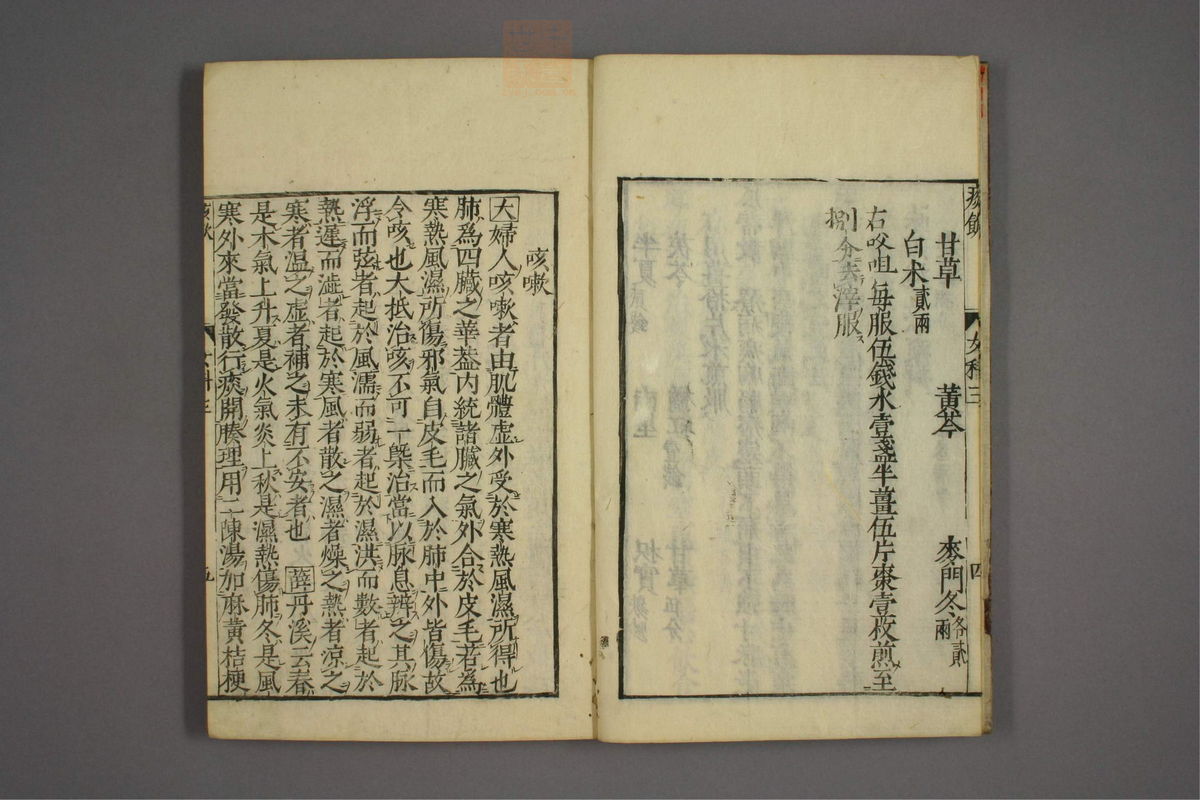 甘草　黃芩　麥門冬各貳兩
白朮貳兩
右㕮咀每服伍錢水壹盞半薑伍片棗壹枚煎至
捌分去滓服
女科三
四
咳嗽
大婦人咳嗽者由肌體虛外受於寒熱風濕所得也
肺為四臟之華蓋內統諸臟之氣外合於皮毛若為
寒熱風濕所傷邪氣自皮毛而入於肺中外皆傷故
令咳也大抵治咳不可一槩治當以脉息辨之其脉
浮而弦者起於風濡而弱者起於濕洪而數者起於
熱遲而澁者起於寒風者散之濕者燥之熱者涼之
寒者溫之虛者補之未有不安者也　薛丹溪云春
是木氣上升夏是火氣炎上秋是濕熱傷肺冬是風
寒外來當發散行痰開腠理用二陳湯加麻黃桔梗